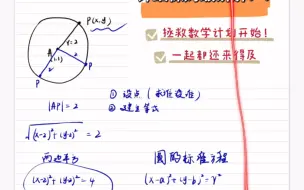 P(x,y)
r=2
A
(2,2)
2
P
P
拯救数学计划开始！
一起都还来得及
|AP|=2
① 设点
② 建立等式
√(x-2)²+(y-2)² = 2
两边平方
圆的标准方程
(x-2)²+(y-2)²=4
(x-a)²+(y-b)²=r²